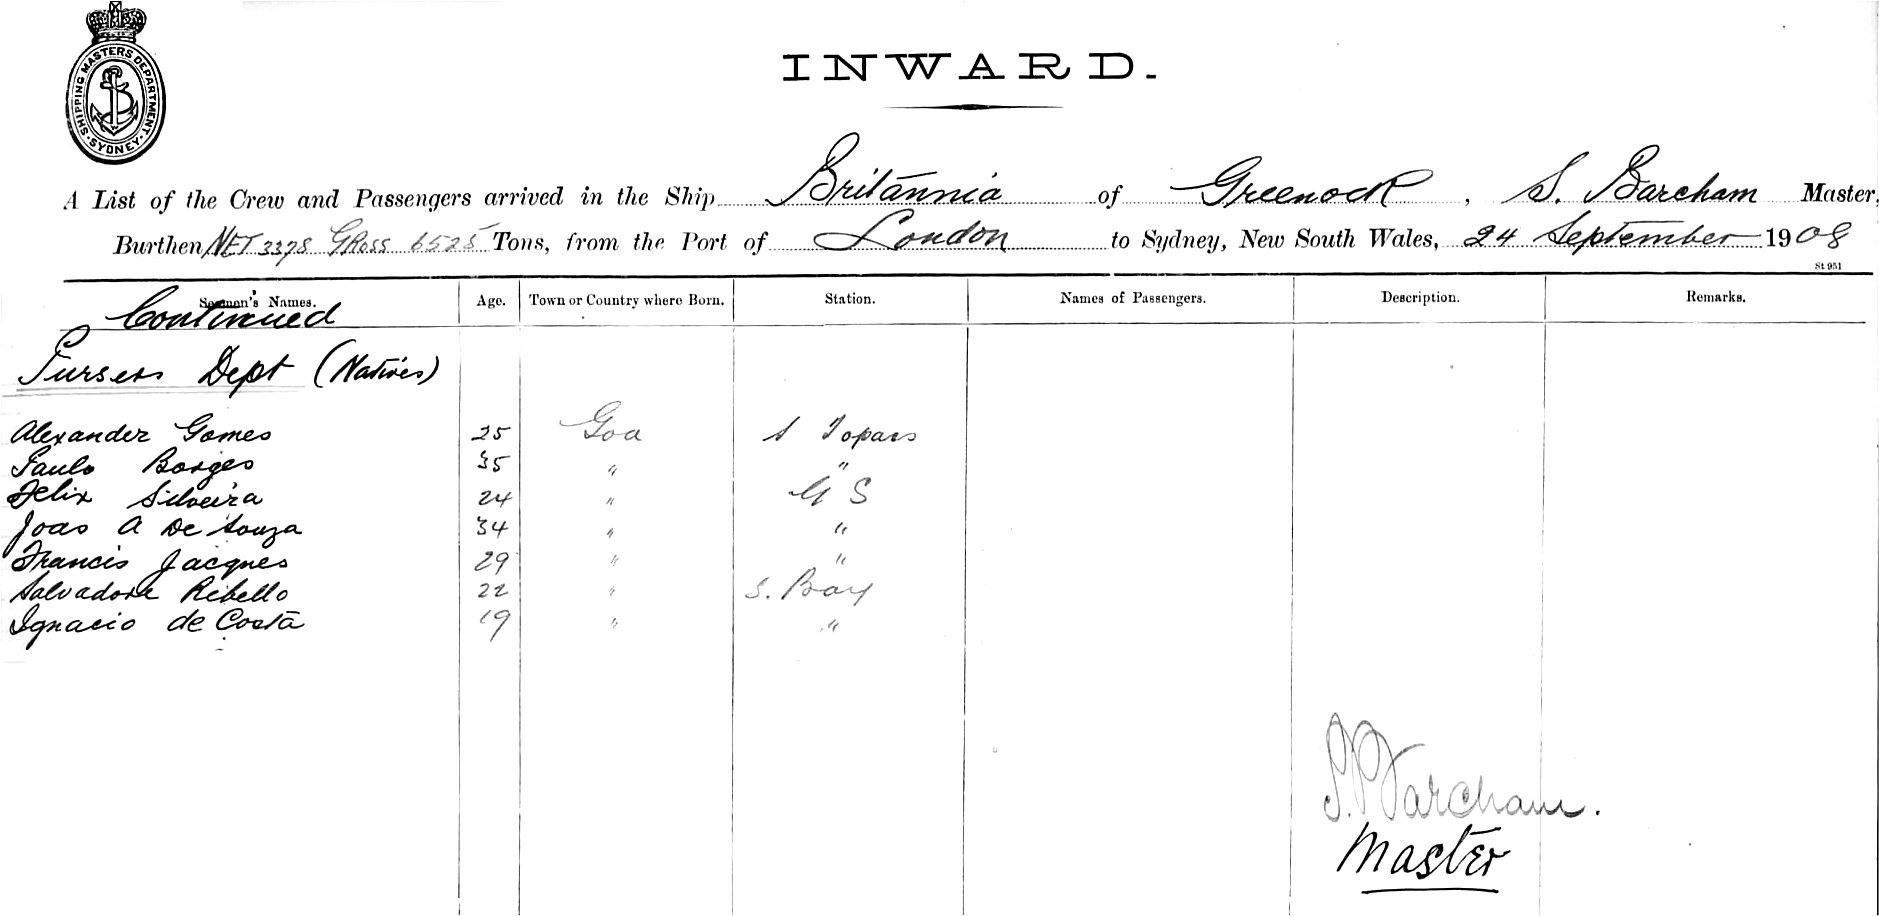 SHIPPING MASTERS DEPARTMENT SYDNEY
INWARD.
A List of the Crew and Passengers arrived in the Ship Britannia of Greenock, S. Barcham Master,
Burthen NET 3378 GROSS 6525 Tons, from the Port of London to Sydney, New South Wales, 24 September 1908
St 951
Seamen's Names. Age. Town or Country where Born. Station. Names of Passengers. Description. Remarks.
Continued
Pursers Dept (Natives)
Alexander Gomes 25 Goa S Topass
Paulo Borges 35 " "
Felix Silveira 24 " G S
Joao A De Souza 34 " "
Francis Jacques 29 " "
Salvadore Ribello 22 " S. Boy
Ignacio de Costa 19 " "
S. Barcham.
Master